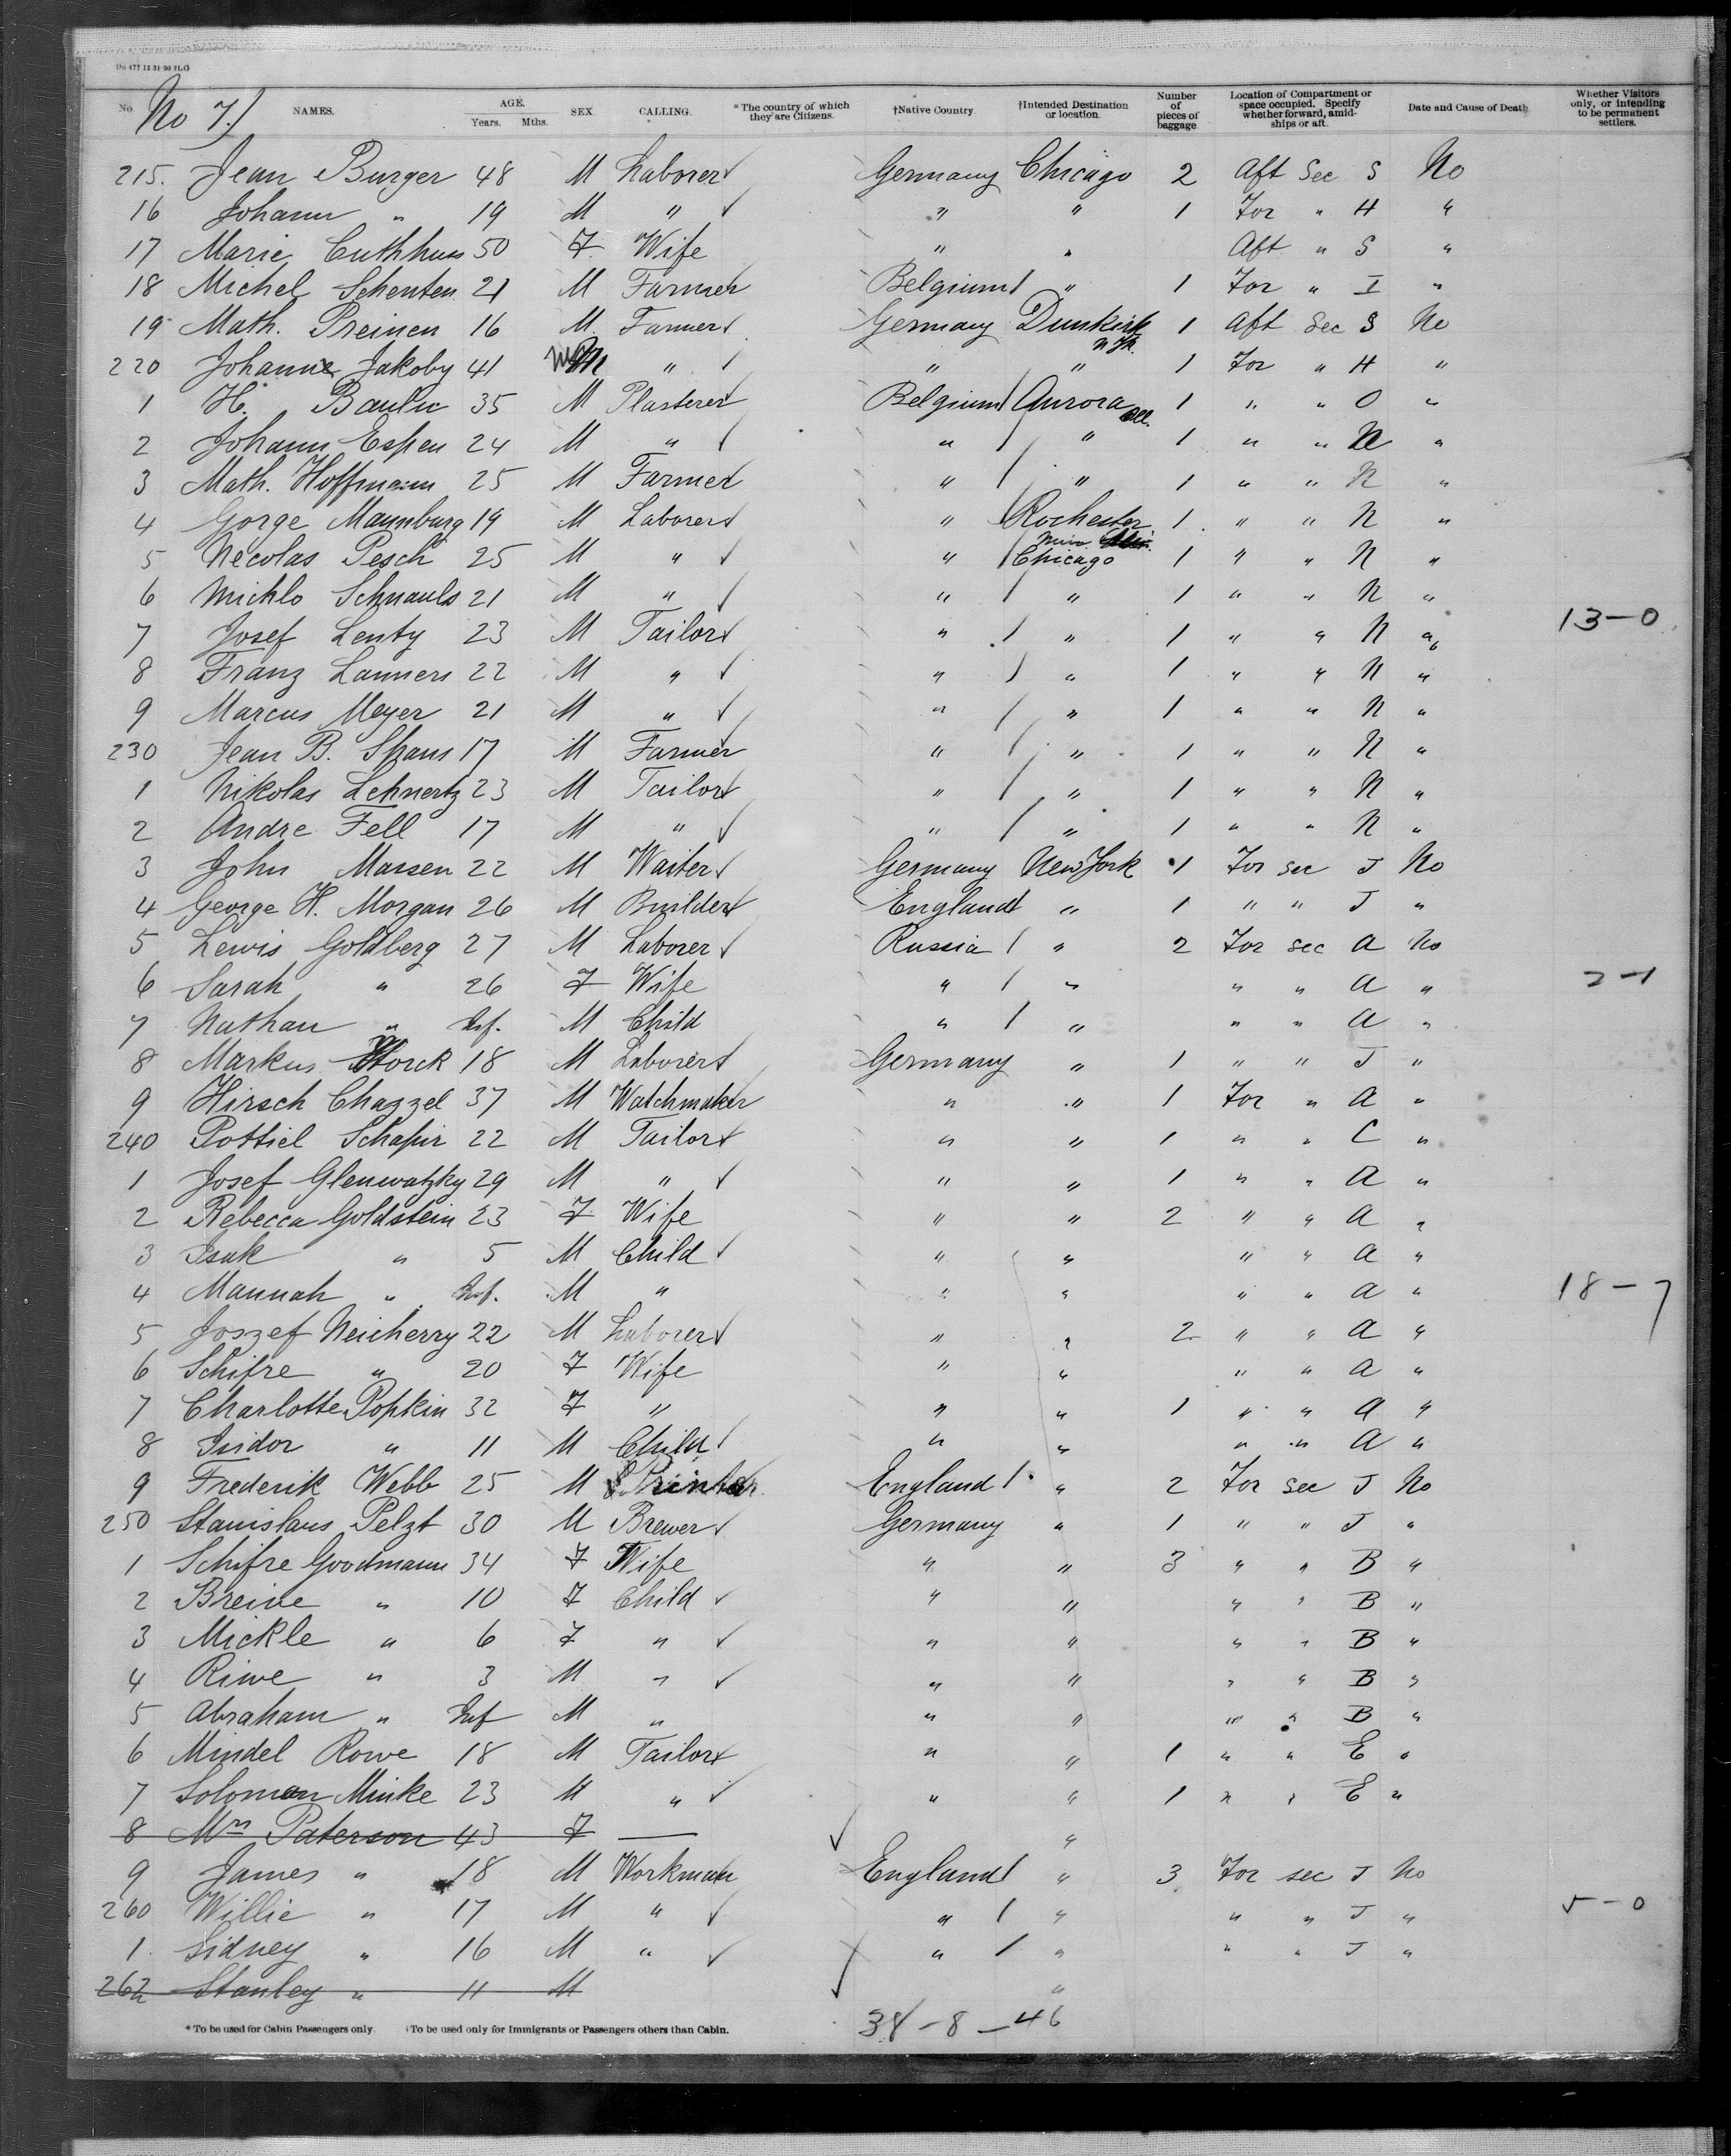 Do 477 12 31 90 21.G
No. NAMES. AGE. Years. Mths. SEX. CALLING. *The country of which they are Citizens. †Native Country †Intended Destination or location. Number of pieces of baggage. Location of Compartment or space occupied. Specify whether forward, amidships or aft. Date and Cause of Death. Whether Visitors only, or intending to be permanent settlers.
No 7.)
215. Jean Burger 48 M Laborer Germany Chicago 2 Aft Sec S No
16 Johann " 19 M " " " 1 For " H "
17 Marie Cuthhus 50 F Wife " " Aft " S "
18 Michel Schenten 21 M Farmer Belgium " 1 For " I "
19 Math. Preinen 16 M. Farmer Germany Dunkirk 1 Aft Sec S No
220 Johann Jakoby 41 M " " " 1 For " H "
1 H. Baulic 35 M Plasterer Belgium Aurora Ill. 1 " " O "
2 Johann Espen 24 M " " " 1 " " N "
3 Math. Hoffmann 25 M Farmer " " 1 " " N "
4 Gorge Maunburg 19 M Laborer " Rochester Min. 1 " " N "
5 Necolas Pesch 25 M " " Chicago 1 " " N "
6 Michlo Schnauls 21 M " " " 1 " " N "
7 Josef Lenty 23 M Tailor " " 1 " " N " 13-0
8 Franz Lanners 22 M " " " 1 " " N "
9 Marcus Meyer 21 M " " " 1 " " N "
230 Jean B. Spaus 17 M Farmer " " 1 " " N "
1 Nikolas Lehnertz 23 M Tailor " " 1 " " N "
2 Andre Fell 17 M " " " 1 " " N "
3 John Massen 22 M Waiter Germany New York 1 For sec J No
4 George H. Morgan 26 M Builder England " 1 " " J "
5 Lewis Goldberg 27 M Laborer Russia " 2 For sec A No
6 Sarah " 26 F Wife " " " " A " 2-1
7 Nathan " Inf. M Child " " " " A "
8 Markus Storck 18 M Laborer Germany " 1 " " J "
9 Hirsch Chazzel 37 M Watchmaker " " 1 For " A "
240 Pottiel Schapir 22 M Tailor " " 1 " " C "
1 Josef Glenwatzky 29 M " " " 1 " " A "
2 Rebecca Goldstein 23 F Wife " " 2 " " A "
3 Isak " 5 M Child " " " " A "
4 Mannah " Inf. M " " " " " A " 18-7
5 Joszef Neicherry 22 M Laborer " " 2 " " A "
6 Schifre " 20 F Wife " " " " A "
7 Charlotte Popkin 32 F " " " 1 " " A "
8 Isidor " 11 M Child " " " " A "
9 Frederik Webb 25 M Printer England " 2 For sec J No
250 Stanislaus Pelzt 30 M Brewer Germany " 1 " " J "
1 Schifre Goodmann 34 F Wife " " 3 " " B "
2 Breine " 10 F Child " " " " B "
3 Mickle " 6 F " " " " " B "
4 Riwe " 3 M " " " " " B "
5 Abraham " Inf M " " " " " B "
6 Mindel Rowe 18 M Tailor " " 1 " " E "
7 Solomon Minke 23 M " " " 1 " " E "
8 Mrs Paterson 43 F — "
9 James " 18 M Workman England " 3 For sec J No
260 Willie " 17 M " " " " " J " 5-0
1. Sidney " 16 M " " " " " J "
262 Stanley " 11 M "
*To be used for Cabin Passengers only. †To be used only for Immigrants or Passengers others than Cabin. 38-8-46